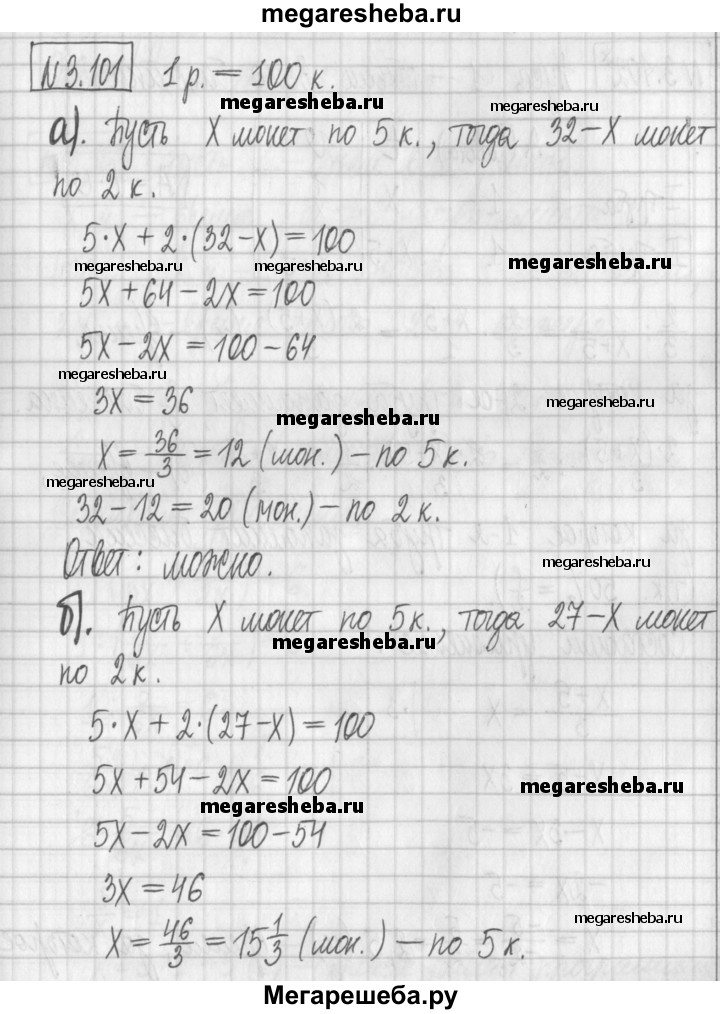 megaresheba.ru
N 3.101 1 р. = 100 к.
megaresheba.ru megaresheba.ru
а). Пусть X монет по 5 к., тогда 32-X монет
по 2 к.
5·X + 2·(32-X) = 100
megaresheba.ru megaresheba.ru megaresheba.ru
5X + 64 - 2X = 100
5X - 2X = 100 - 64
megaresheba.ru
3X = 36 megaresheba.ru
megaresheba.ru
X = 36/3 = 12 (мон.) - по 5 к.
megaresheba.ru
32 - 12 = 20 (мон.) - по 2 к.
Ответ: можно. megaresheba.ru
б). Пусть X монет по 5 к., тогда 27-X монет
megaresheba.ru
по 2 к.
5·X + 2·(27-X) = 100
5X + 54 - 2X = 100 megaresheba.ru
megaresheba.ru
5X - 2X = 100 - 54
3X = 46
megaresheba.ru
X = 46/3 = 15 1/3 (мон.) - по 5 к.
Мегарешеба.ру